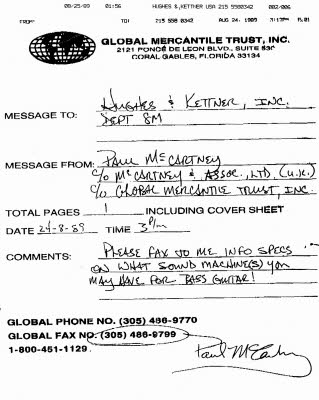 08/25/99 01:56 HUGHES & KETTNER USA 215 5580342 002/006
FROM TO: 215 558 0342 AUG 24, 1989 3:13PM P.01
GLOBAL MERCANTILE TRUST, INC.
2121 PONCE DE LEON BLVD., SUITE 530
CORAL GABLES, FLORIDA 33134
MESSAGE TO: HUGHES & KETTNER, INC.
DEPT 8M
MESSAGE FROM: PAUL McCARTNEY
C/O McCARTNEY & ASSOC., LTD. (U.K.)
C/O GLOBAL MERCANTILE TRUST, INC.
TOTAL PAGES 1 INCLUDING COVER SHEET
DATE 24-8-89 TIME 3 P/m
COMMENTS: PLEASE FAX TO ME INFO SPECS
ON WHAT SOUND MACHINE(S) YOU
MAY HAVE FOR BASS GUITAR!
GLOBAL PHONE NO. (305) 486-9770
GLOBAL FAX NO. (305) 486-9799
1-800-451-1129
Paul McCartney